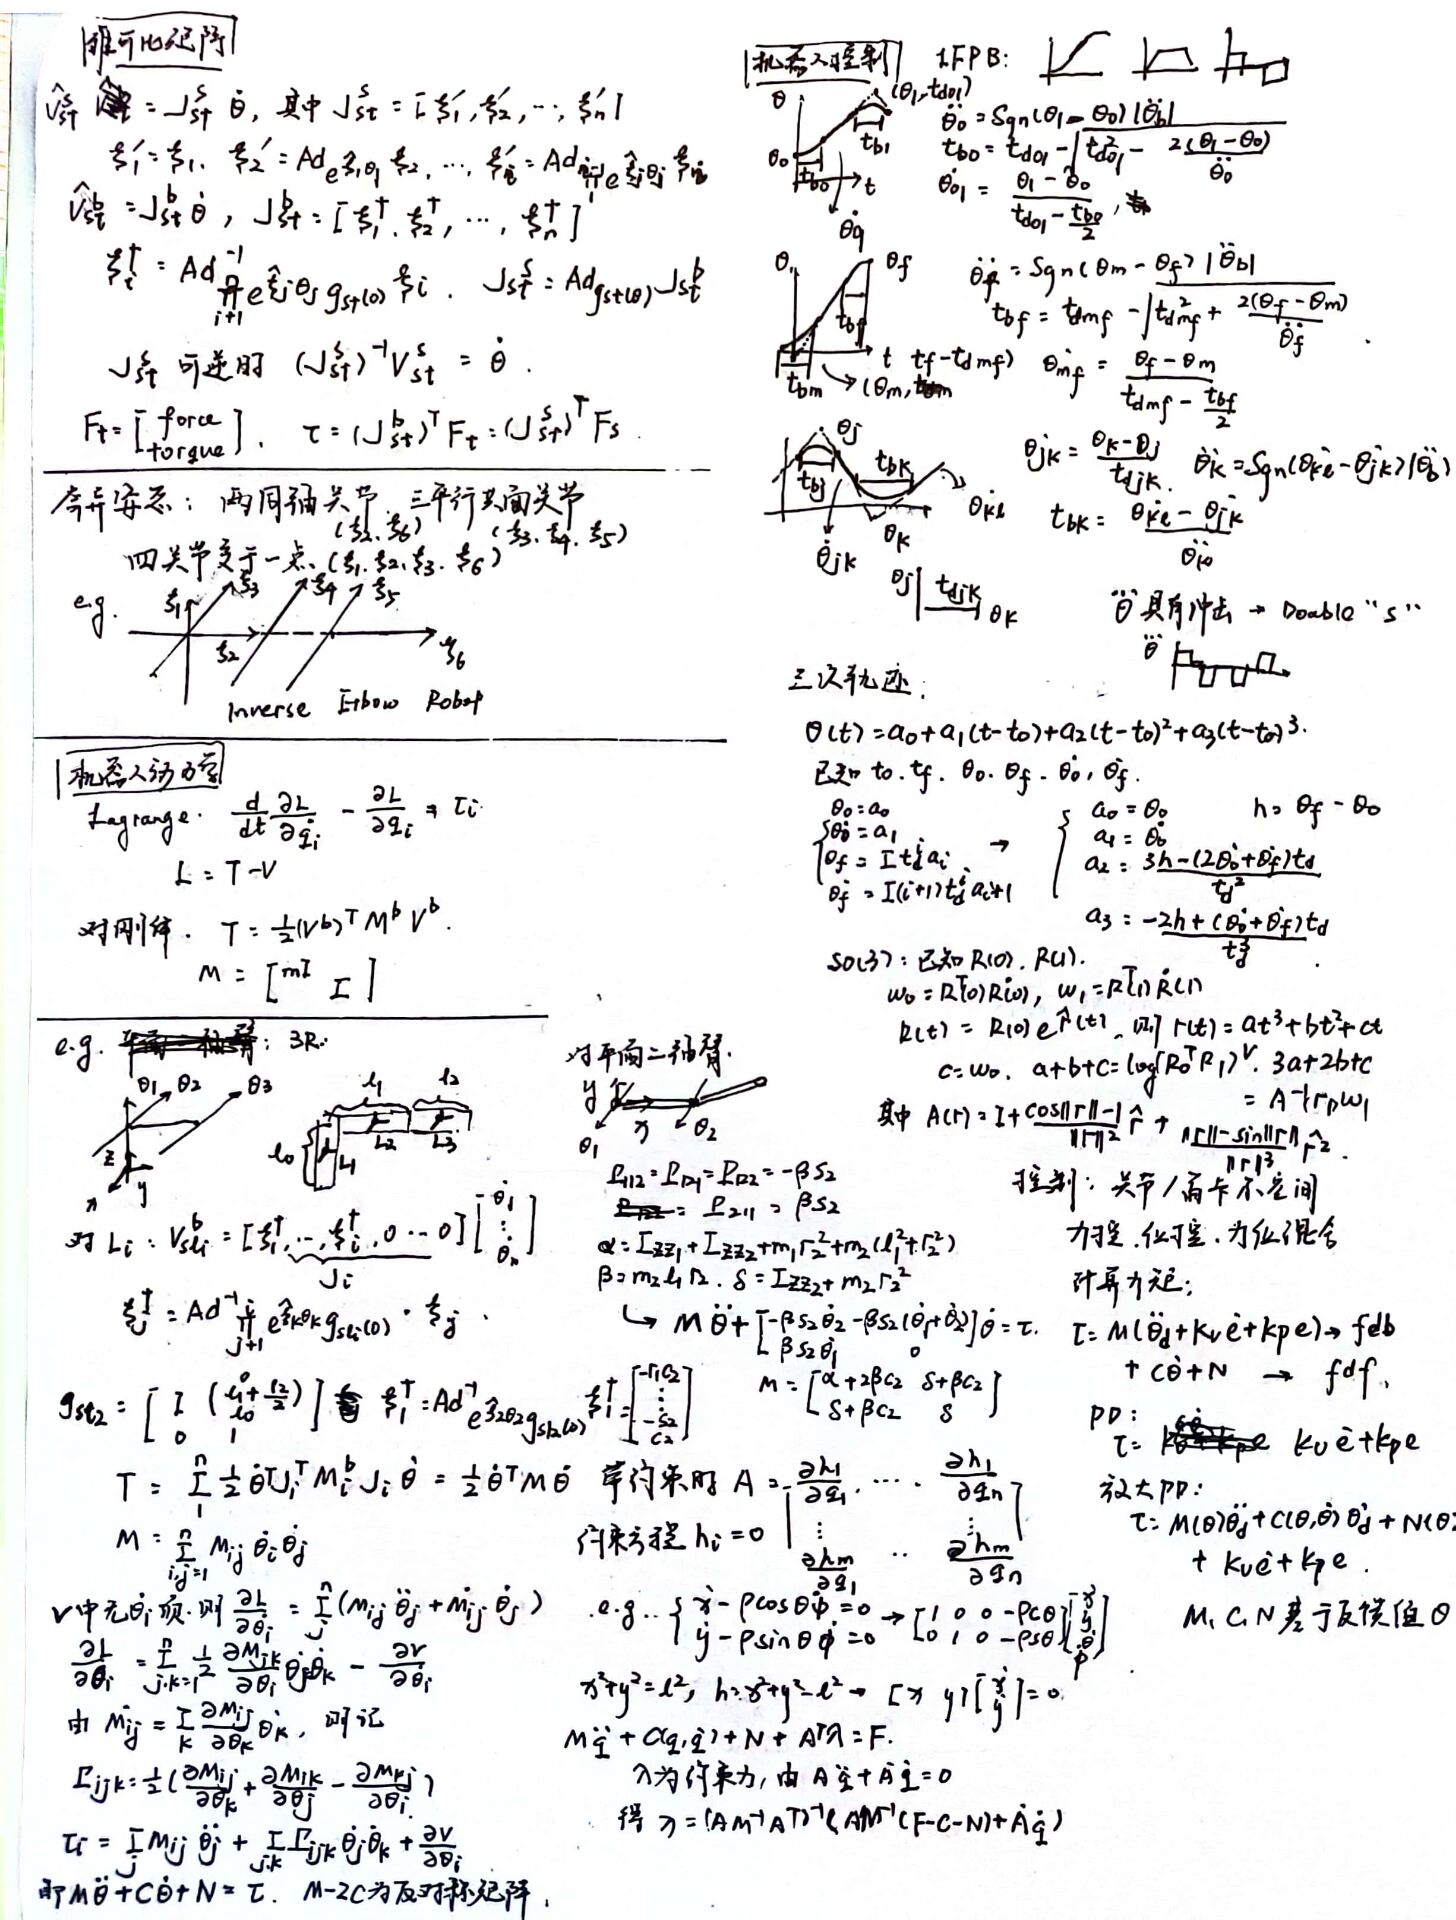 雅可比矩阵
V̂ˢst = Jˢst θ̇, 其中 Jˢst = [ξ₁', ξ₂', ⋯, ξₙ']
ξ₁' = ξ₁. ξ₂' = Ad e^ξ̂₁θ₁ ξ₂, ⋯, ξᵢ' = Ad ∏₁^(i-1) e^ξ̂jθj ξᵢ
V̂ᵇst = Jᵇst θ̇, Jᵇst = [ξ₁†, ξ₂†, ⋯, ξₙ†]
ξᵢ† = Ad⁻¹ ∏ᵢ₊₁ⁿ e^ξ̂jθj gst(0) ξᵢ. Jˢst = Ad gst(θ) Jᵇst
Jˢst 可逆时 (Jˢst)⁻¹ Vˢst = θ̇.
Ft = [force torque], τ = (Jᵇst)ᵀ Ft = (Jˢst)ᵀ Fs.
奇异姿态: 两同轴关节 三平行共面关节
(ξ₂, ξ₆) (ξ₃, ξ₄, ξ₅)
四关节交于一点. (ξ₁, ξ₂, ξ₃, ξ₆)
e.g. ξ₁ ξ₃ ξ₄ ξ₅
ξ₂ ξ₆
Inverse Elbow Robot
机器人动力学
Lagrange. d/dt ∂L/∂q̇ᵢ - ∂L/∂qᵢ = τᵢ
L = T-V
对刚体. T = ½(Vᵇ)ᵀ Mᵇ Vᵇ.
M = [mI I]
e.g. : 3R.
θ₁ θ₂ θ₃ l₁ l₂
l₀ L₁ L₂ L₃
z x y
对 Lᵢ: Vᵇsli = [ξ₁†, ⋯, ξᵢ†, 0 ⋯ 0] [θ̇₁ ⋮ θ̇ₙ]
Jᵢ
ξj† = Ad⁻¹ ∏ⱼ₊₁ⁱ e^ξ̂kθk gsli(0) · ξj.
gsl₂ = [I (0 l₁+r₂/2 l₀) 0 1] ξ₁† = Ad⁻¹ e^ξ̂₂θ₂ gsl₂(0) ξ₁† = [-r₁c₂ ⋮ -s₂ c₂]
T = Σ₁ⁿ ½ θ̇ᵀ Jᵢᵀ Mᵢᵇ Jᵢ θ̇ = ½ θ̇ᵀ M θ̇
M = Σᵢ,ⱼ₌₁ⁿ Mij θ̇ᵢ θ̇j
V中无θ̇ᵢ项. 则 ∂L/∂θ̇ᵢ = Σjⁿ (Mij θ̈j + Ṁij θ̇j)
∂L/∂θᵢ = Σj,k=1ⁿ ½ ∂Mjk/∂θᵢ θ̇j θ̇k - ∂V/∂θᵢ
由 Ṁij = Σk ∂Mij/∂θk θ̇k, 则记
Γijk = ½(∂Mij/∂θk + ∂Mik/∂θj - ∂Mkj/∂θᵢ)
τᵢ = Σj Mij θ̈j + Σj,k Γijk θ̇j θ̇k + ∂V/∂θᵢ
即 Mθ̈ + Cθ̇ + N = τ. Ṁ-2C为反对称矩阵.
对平面二轴臂.
y x θ₁ θ₂
Γ₁₁₂ = Γ₁₂₁ = Γ₁₂₂ = -βs₂
Γ₂₁₁ = βs₂
α = Izz₁ + Izz₂ + m₁r₁² + m₂(l₁² + r₂²)
β = m₂l₁r₂. δ = Izz₂ + m₂r₂²
↳ Mθ̈ + [-βs₂θ̇₂ -βs₂(θ̇₁+θ̇₂) βs₂θ̇₁ 0] θ̇ = τ.
M = [α+2βc₂ δ+βc₂ δ+βc₂ δ]
带约束时 A = [∂h₁/∂q₁ ⋯ ∂h₁/∂qₙ ⋮ ⋮ ∂hm/∂q₁ ⋯ ∂hm/∂qₙ]
约束方程 hᵢ = 0
e.g. { ẋ - ρcosθφ̇ = 0 ẏ - ρsinθφ̇ = 0 → [1 0 0 -ρcθ 0 1 0 -ρsθ] [ẋ ẏ θ̇ φ̇]
x²+y²=l², h=x²+y²-l² → [x y][ẋ ẏ] = 0.
Mq̈ + C(q,q̇) + N + Aᵀλ = F.
λ为约束力, 由 Aq̈ + Ȧq̇ = 0
得 λ = (AM⁻¹Aᵀ)⁻¹(AM⁻¹(F-C-N) + Ȧq̇)
机器人控制 LFPB:
θ (θ₁, td01) θ₀ tb0 tb1 t
θ̈₀ = Sgn(θ₁ - θ₀)|θ̈b|
tb0 = td01 - √(td01² - 2(θ₁-θ₀)/θ̈₀)
θ̇01 = (θ₁-θ₀)/(td01 - tb0/2),
θ θf tbf tbm t tf-tdmf) (θm,
θ̈f = Sgn(θm - θf)|θ̈b|
tbf = tdmf - √(tdmf² + 2(θf-θm)/θ̈f)
θ̇mf = (θf-θm)/(tdmf - tbf/2)
θj tbj tbk θk θ̇kl θ̇jk
θ̇jk = (θk-θj)/tdjk. θ̈k = Sgn(θ̇kl - θ̇jk)|θ̈b|
tbk = (θ̇kl - θ̇jk)/θ̈k
θj tdjk θk
θ̈具有冲击 → Double "S"
三次轨迹:
θ(t) = a₀ + a₁(t-t₀) + a₂(t-t₀)² + a₃(t-t₀)³.
已知 t₀. tf. θ₀. θf. θ̇₀, θ̇f.
θ₀ = a₀ a₀ = θ₀ h = θf - θ₀
θ̇₀ = a₁ → a₁ = θ̇₀
θf = Σ tdⁱ aᵢ a₂ = (3h - (2θ̇₀+θ̇f)td)/td²
θ̇f = Σ(i+1)tdⁱ aᵢ₊₁ a₃ = (-2h + (θ̇₀+θ̇f)td)/td³.
SO(3): 已知 R(0), R(1).
w₀ = Rᵀ(0)Ṙ(0), w₁ = Rᵀ(1)Ṙ(1)
R(t) = R(0)e^r̂(t), 则 r(t) = at³+bt²+ct
c = w₀. a+b+c = log(R₀ᵀR₁)ᵛ. 3a+2b+c
= A⁻¹(r₁)w₁
其中 A(r) = I + (cos‖r‖-1)/‖r‖² r̂ + (‖r‖-sin‖r‖)/‖r‖³ r̂².
控制: 关节/笛卡尔空间
力控. 位控. 力位混合
计算力矩:
τ = M(θ̈d + Kvė + Kpe) → fdb
+ Cθ̇ + N → fdf.
PD:
τ = Kvė + Kpe
放大PD:
τ = M(θ)θ̈d + C(θ,θ̇)θ̇d + N(θ
+ Kvė + Kpe.
M, C, N 基于反馈值 θ